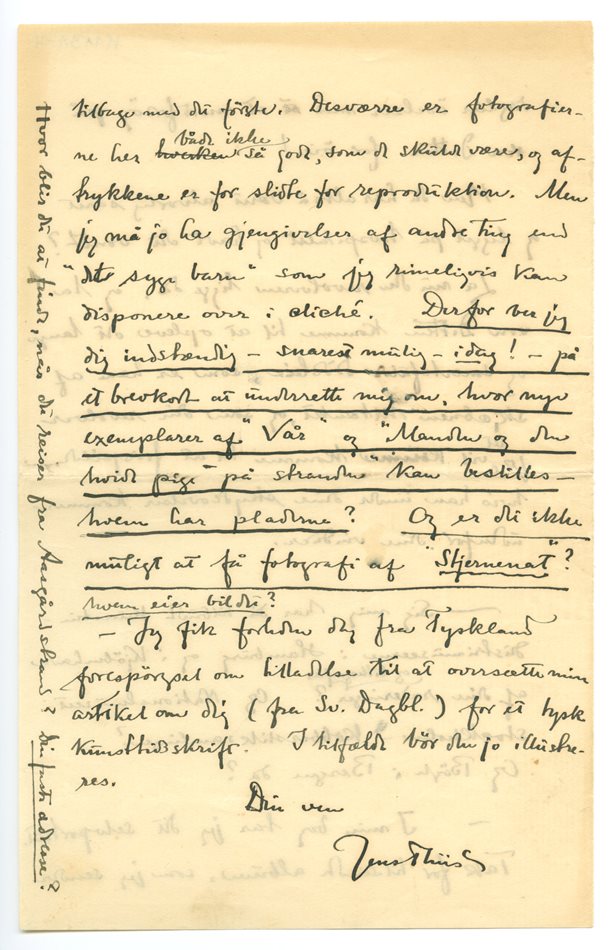 tilbage med det første. Desværre er fotografier-
ne her hverken både ikke så gode, som de skulde være, og af-
trykkene er for slidte for reproduktion. Men
jeg må jo ha gjengivelser af andre ting end
"det syge barn" som jeg rimeligvis kan
disponere over i cliché. Derfor ber jeg
dig indstændig – snarest mulig – idag! – på
et brevkort at underrette mig om, hvor nye
exemplarer af "Vår" og "Manden og den
hvide pige" på stranden" kan bestilles –
hvem har pladerne? Og er det ikke
muligt at få fotografi af "Stjernenat"?
hvem eier bildet?
– Jeg fik forleden dag fra Tyskland
forespørgsel om tilladelse til at oversætte min
artikel om dig (fra Sv. Dagbl.) for et tysk
kunsttidsskrift. I tilfælde bør den jo illustre-
res.
Din ven
Jens Thiis
Hvor blir du at finde, når du reiser fra Aasgårdstrand? Din faste adresse?